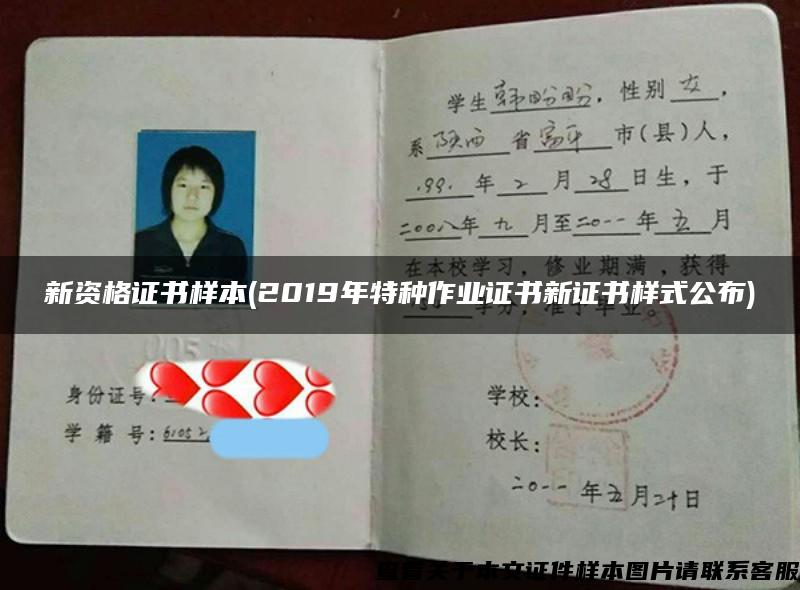 学生韩盼盼，性别女，
系陕西省富平市(县)人，
1991年2月28日生，于
二00八年九月至二0一一年五月
在本校学习，修业期满，获得
学分，准予毕业。
新资格证书样本(2019年特种作业证书新证书样式公布)
005
身份证号:
学 籍 号: 61052
学校:
校长:
二0一一年五月二十日
查看关于本文证件样本图片请联系客服